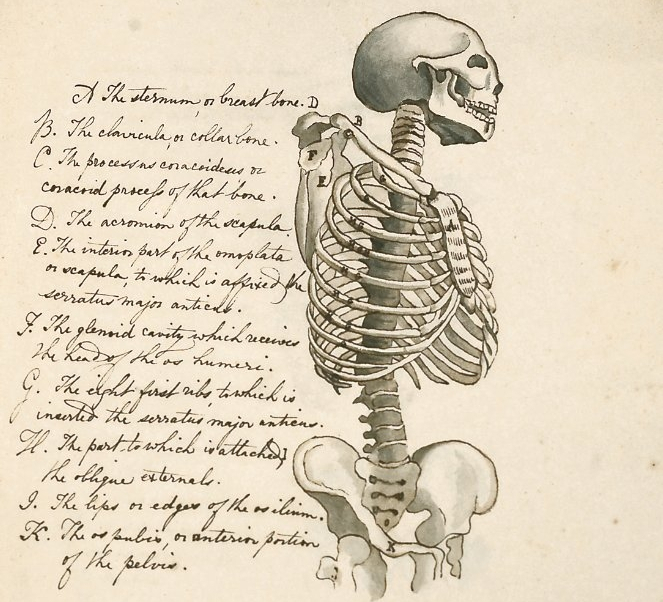 A The sternum, or breast bone.
B. The clavicula, or collar bone.
C. The processus coracoideus or
coracoid process of that bone.
D. The acromion of the scapula
E. The interior part of the omoplata
or scapula, to which is affixed the
serratus major anticus.
F. The glenoid cavity which receives
the head of the os humeri.
G. The eight first ribs to which is
inserted the serratus major anticus.
H. The part to which is attached
the oblique externals.
I. The lips or edges of the os ilium.
K. The os pubis, or anterior portion
of the pelvis.
D
B
F
E
C
A
I
K